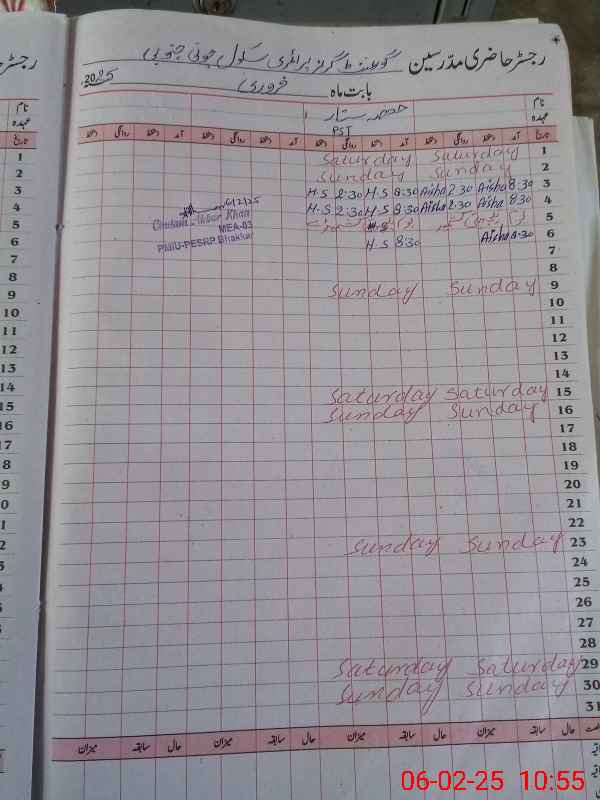 رجسٹر حاضری مدرسین گورنمنٹ گرلز پرائمری سکول جنوبی
بابت ماہ فروری 2025
نام
عہدہ PST
تاریخ آمد دستخط روانگی دستخط آمد دستخط روانگی دستخط آمد دستخط روانگی دستخط
Saturday Saturday 1
Sunday Sunday 2
H-S 2:30 H-S 8:30 Aisha 2:30 Aisha 8:30 3
H-S 2:30 H-S 8:30 Aisha 2:30 Aisha 8:30 4
5
H-S 8:30 Aisha 8:30 6
6/2/25
Ghulam Akbar Khan
MEA-03
PMIU-PESRP Bhakkar
7
8
Sunday Sunday 9
10
11
12
13
14
Saturday Saturday 15
Sunday Sunday 16
17
18
19
20
21
22
Sunday Sunday 23
24
25
26
27
28
Saturday Saturday 29
Sunday Sunday 30
31
حال سابقہ میزان حال سابقہ میزان حال سابقہ میزان
06-02-25 10:55